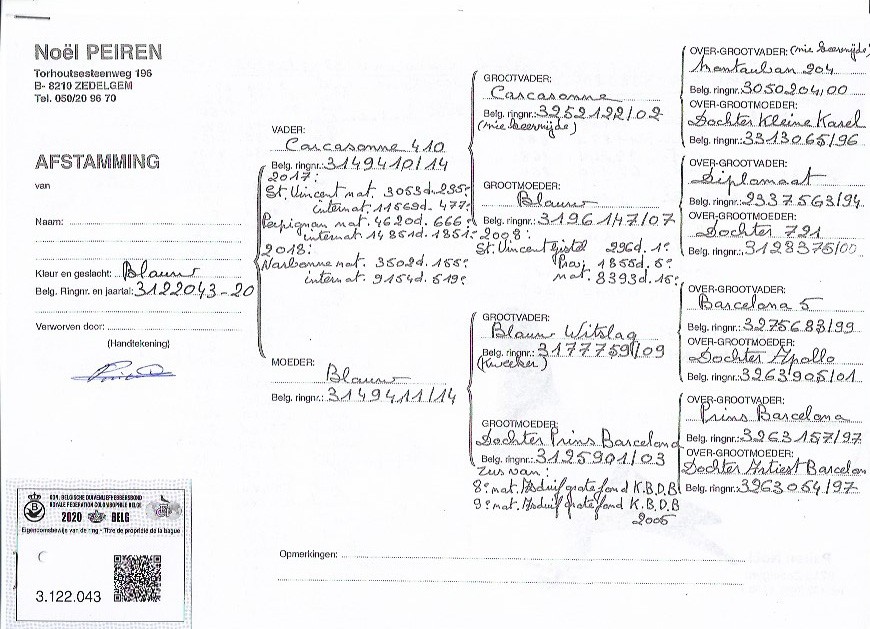 Noël PEIREN
Torhoutsesteenweg 196
B- 8210 ZEDELGEM
Tel. 050/20 96 70
AFSTAMMING
van
Naam:
Kleur en geslacht: Blauw
Belg. Ringnr. en jaartal: 3122043-20
Verworven door:
(Handtekening)
VADER:
Carcasonne 410
Belg. ringnr.: 3149410/14
2017:
St. Vincent nat. 3053d. 295e
internat. 11569d. 477e
Perpignan nat. 4620d. 666e
internat. 14851d. 1851e
2018:
Narbonne nat. 3502d. 155e
internat. 9154d. 519e
MOEDER:
Blauw
Belg. ringnr.: 3149411/14
GROOTVADER:
Carcasonne
Belg. ringnr.: 3252122/02
(mie keernijde)
GROOTMOEDER:
Blauw
Belg. ringnr.: 3196147/07
2008:
St. Vincent Gistel 296d. 1e
Prov 1855d. 5e
nat. 8393d. 15e
GROOTVADER:
Blauw Witslag
Belg. ringnr.: 3177759/09
(Kweker)
GROOTMOEDER:
Dochter Prins Barcelona
Belg. ringnr.: 3125901/03
Zus van:
8e nat. Asduif grote fond K.B.D.B
9e nat. Asduif grote fond K.B.D.B
2005
OVER-GROOTVADER:
Montauban 204
Belg. ringnr.: 3050204/00
OVER-GROOTMOEDER:
Dochter Kleine Karel
Belg. ringnr.: 3313065/96
OVER-GROOTVADER:
Diplomaat
Belg. ringnr.: 2337563/94
OVER-GROOTMOEDER:
Dochter 721
Belg. ringnr.: 3128375/00
OVER-GROOTVADER:
Barcelona 5
Belg. ringnr.: 3275683/99
OVER-GROOTMOEDER:
Dochter Apollo
Belg. ringnr.: 3263905/01
OVER-GROOTVADER:
Prins Barcelona
Belg. ringnr.: 3263157/97
OVER-GROOTMOEDER:
Dochter Artiest Barcelon
Belg. ringnr.: 3263054/97
Opmerkingen:
KON. BELGISCHE DUIVENLIEFHEBBERSBOND
ROYALE FEDERATION COLOMBOPHILE BELGE
2020 BELG
Eigendomsbewijs van de ring - Titre de propriété de la bague
3.122.043